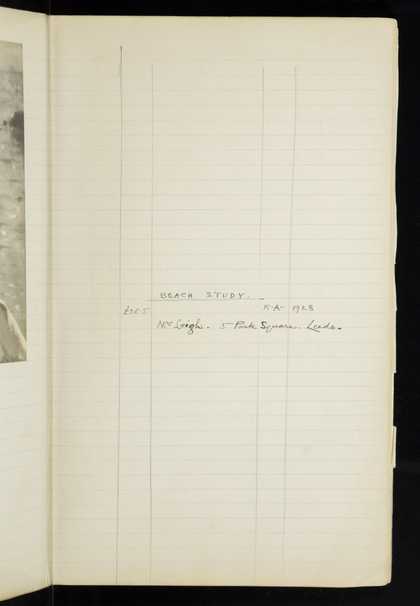 BEACH STUDY.
R.A. 1928
Leigh. 5 Park Square. Leeds.